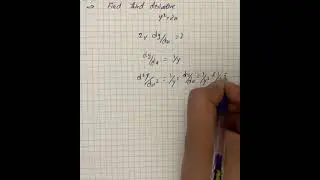 → Find third derivative
y² = 2x
2y dy/dx = 2
dy/dx = 1/y
d²y/dx² = 1/y² dy/dx = 1/y²